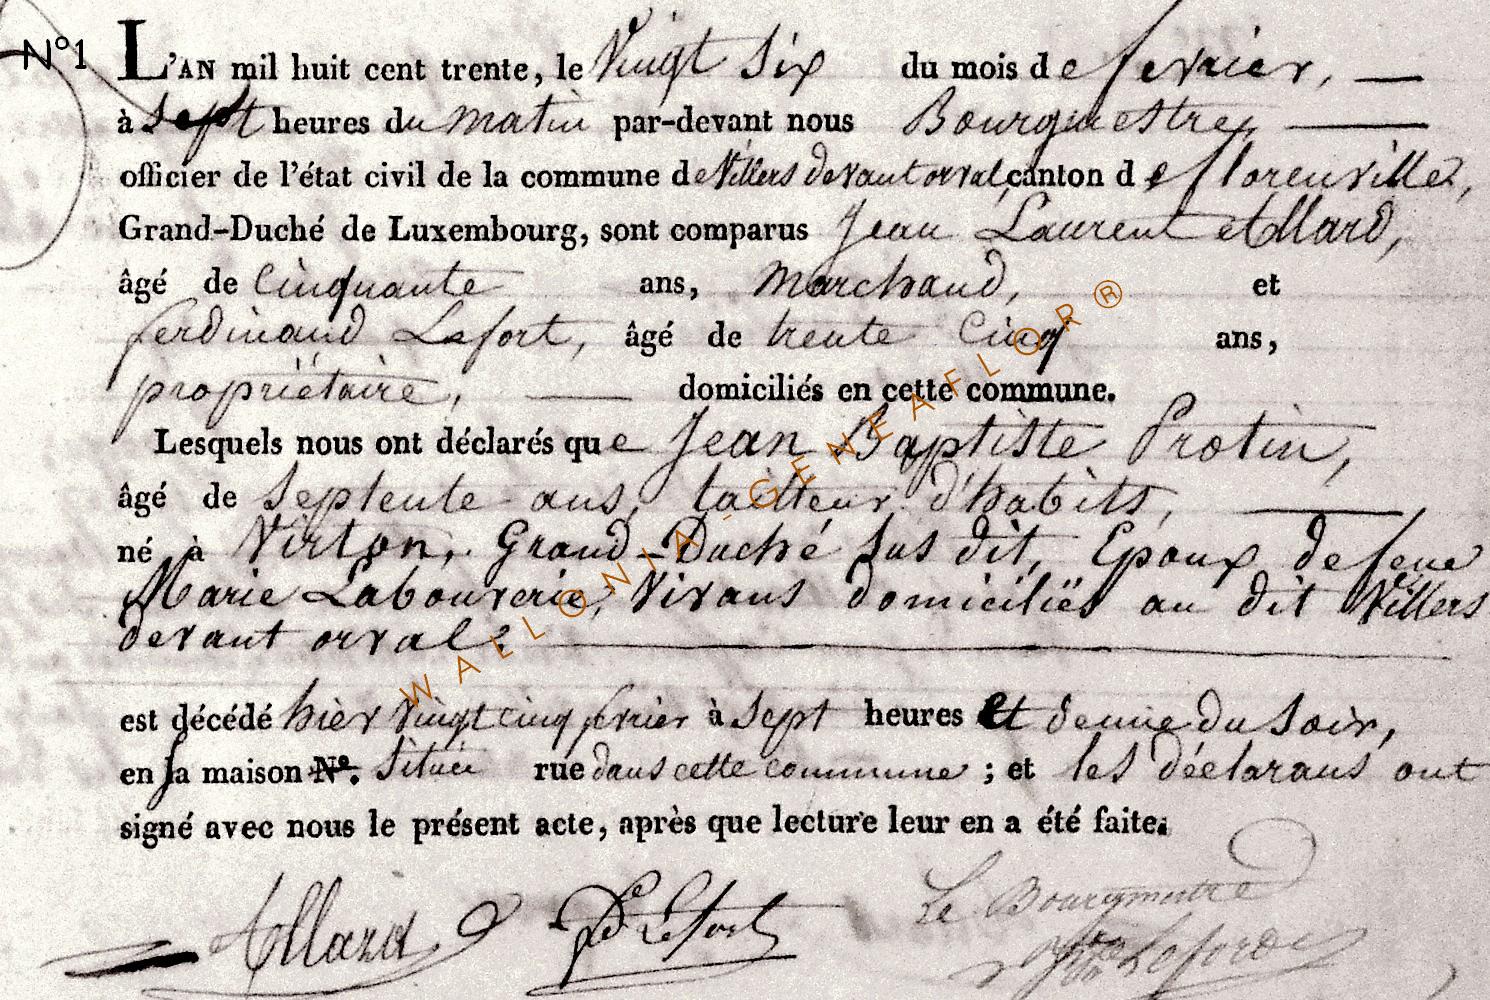 N°1 L'AN mil huit cent trente, le Vingt Six du mois de fevrier,
à Sept heures du matin par-devant nous Bourgmestre,
officier de l'état civil de la commune de Villers devant orval, canton de florenville,
Grand-Duché de Luxembourg, sont comparus Jean Laurent Allard,
âgé de Cinquante ans, marchand, et
ferdinand Lefort, âgé de trente Cinq ans,
propriétaire, domiciliés en cette commune.
Lesquels nous ont déclarés que Jean Baptiste Protin,
âgé de Septente ans, tailleur d'habits,
né à Virton, Grand-Duché Sus dit, Epoux de feue
Marie Labourerie, Vivans domiciliés au dit Villers
devant orval.
est décédé hièr Vingt cinq fevrier à Sept heures et demie du Soir,
en sa maison N°. Située rue dans cette commune ; et les déclarans ont
signé avec nous le présent acte, après que lecture leur en a été faite.
Allard Lefort Le Bourgmestre
WALLONIA-GENEAFLOR®